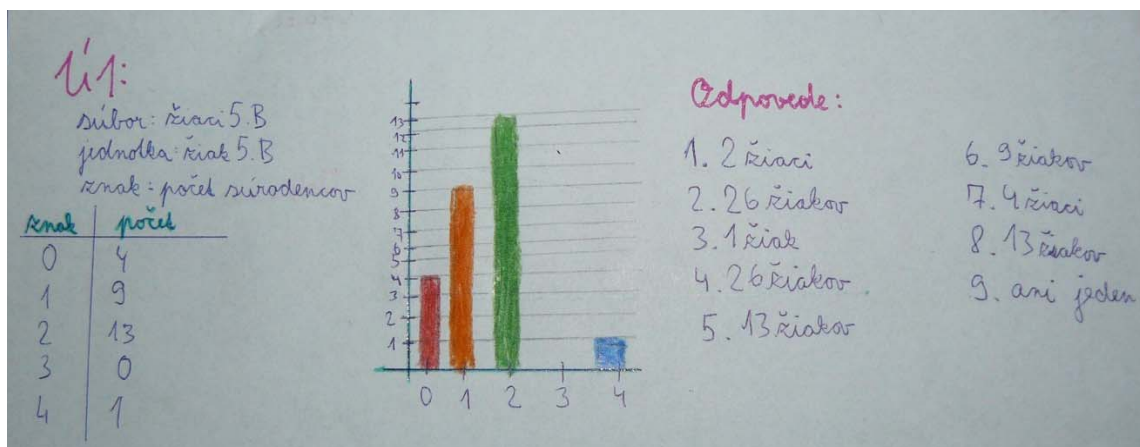 Ú1:
súbor: žiaci 5.B
jednotka: žiak 5.B
znak: počet súrodencov
znak počet
0 4
1 9
2 13
3 0
4 1
13
12
11
10
9
8
7
6
5
4
3
2
1
0 1 2 3 4
Odpovede:
1. 2 žiaci
2. 26 žiakov
3. 1 žiak
4. 26 žiakov
5. 13 žiakov
6. 9 žiakov
7. 4 žiaci
8. 13 žiakov
9. ani jeden